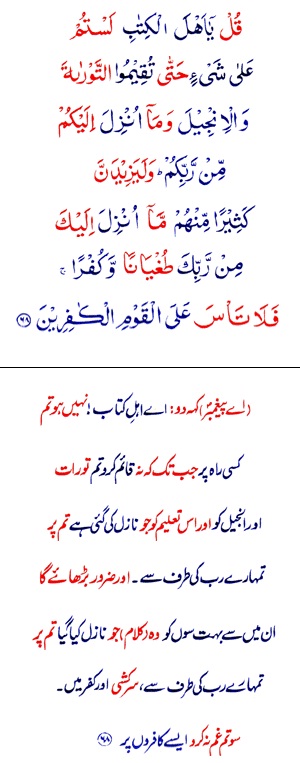 قُلْ يٰۤاَهْلَ الْكِتٰبِ لَسْتُمْ
عَلٰى شَیْءٍ حَتّٰى تُقِيْمُوا التَّوْرٰىةَ
وَالْاِنْجِيْلَ وَمَاۤ اُنْزِلَ اِلَيْكُمْ
مِّنْ رَّبِّكُمْ ؕ وَلَيَزِيْدَنَّ
كَثِيْرًا مِّنْهُمْ مَّاۤ اُنْزِلَ اِلَيْكَ
مِنْ رَّبِّكَ طُغْيَانًا وَّكُفْرًا ۚ
فَلَا تَاْسَ عَلَى الْقَوْمِ الْكٰفِرِيْنَ ﴿۶۸﴾
(اے پیغمبرؐ) کہہ دو: اے اہلِ کتاب! نہیں ہو تم
کسی راہ پر جب تک کہ نہ قائم کرو تم تورات
اور انجیل کو اور اس تعلیم کو جو نازل کی گئی ہے تم پر
تمہارے رب کی طرف سے۔ اور ضرور بڑھائے گا
ان میں سے بہت سوں کو وہ (کلام) جو نازل کیا گیا تم پر
تمہارے رب کی طرف سے، سرکشی اور کفر میں۔
سو تم غم نہ کرو ایسے کافروں پر ﴿۶۸﴾